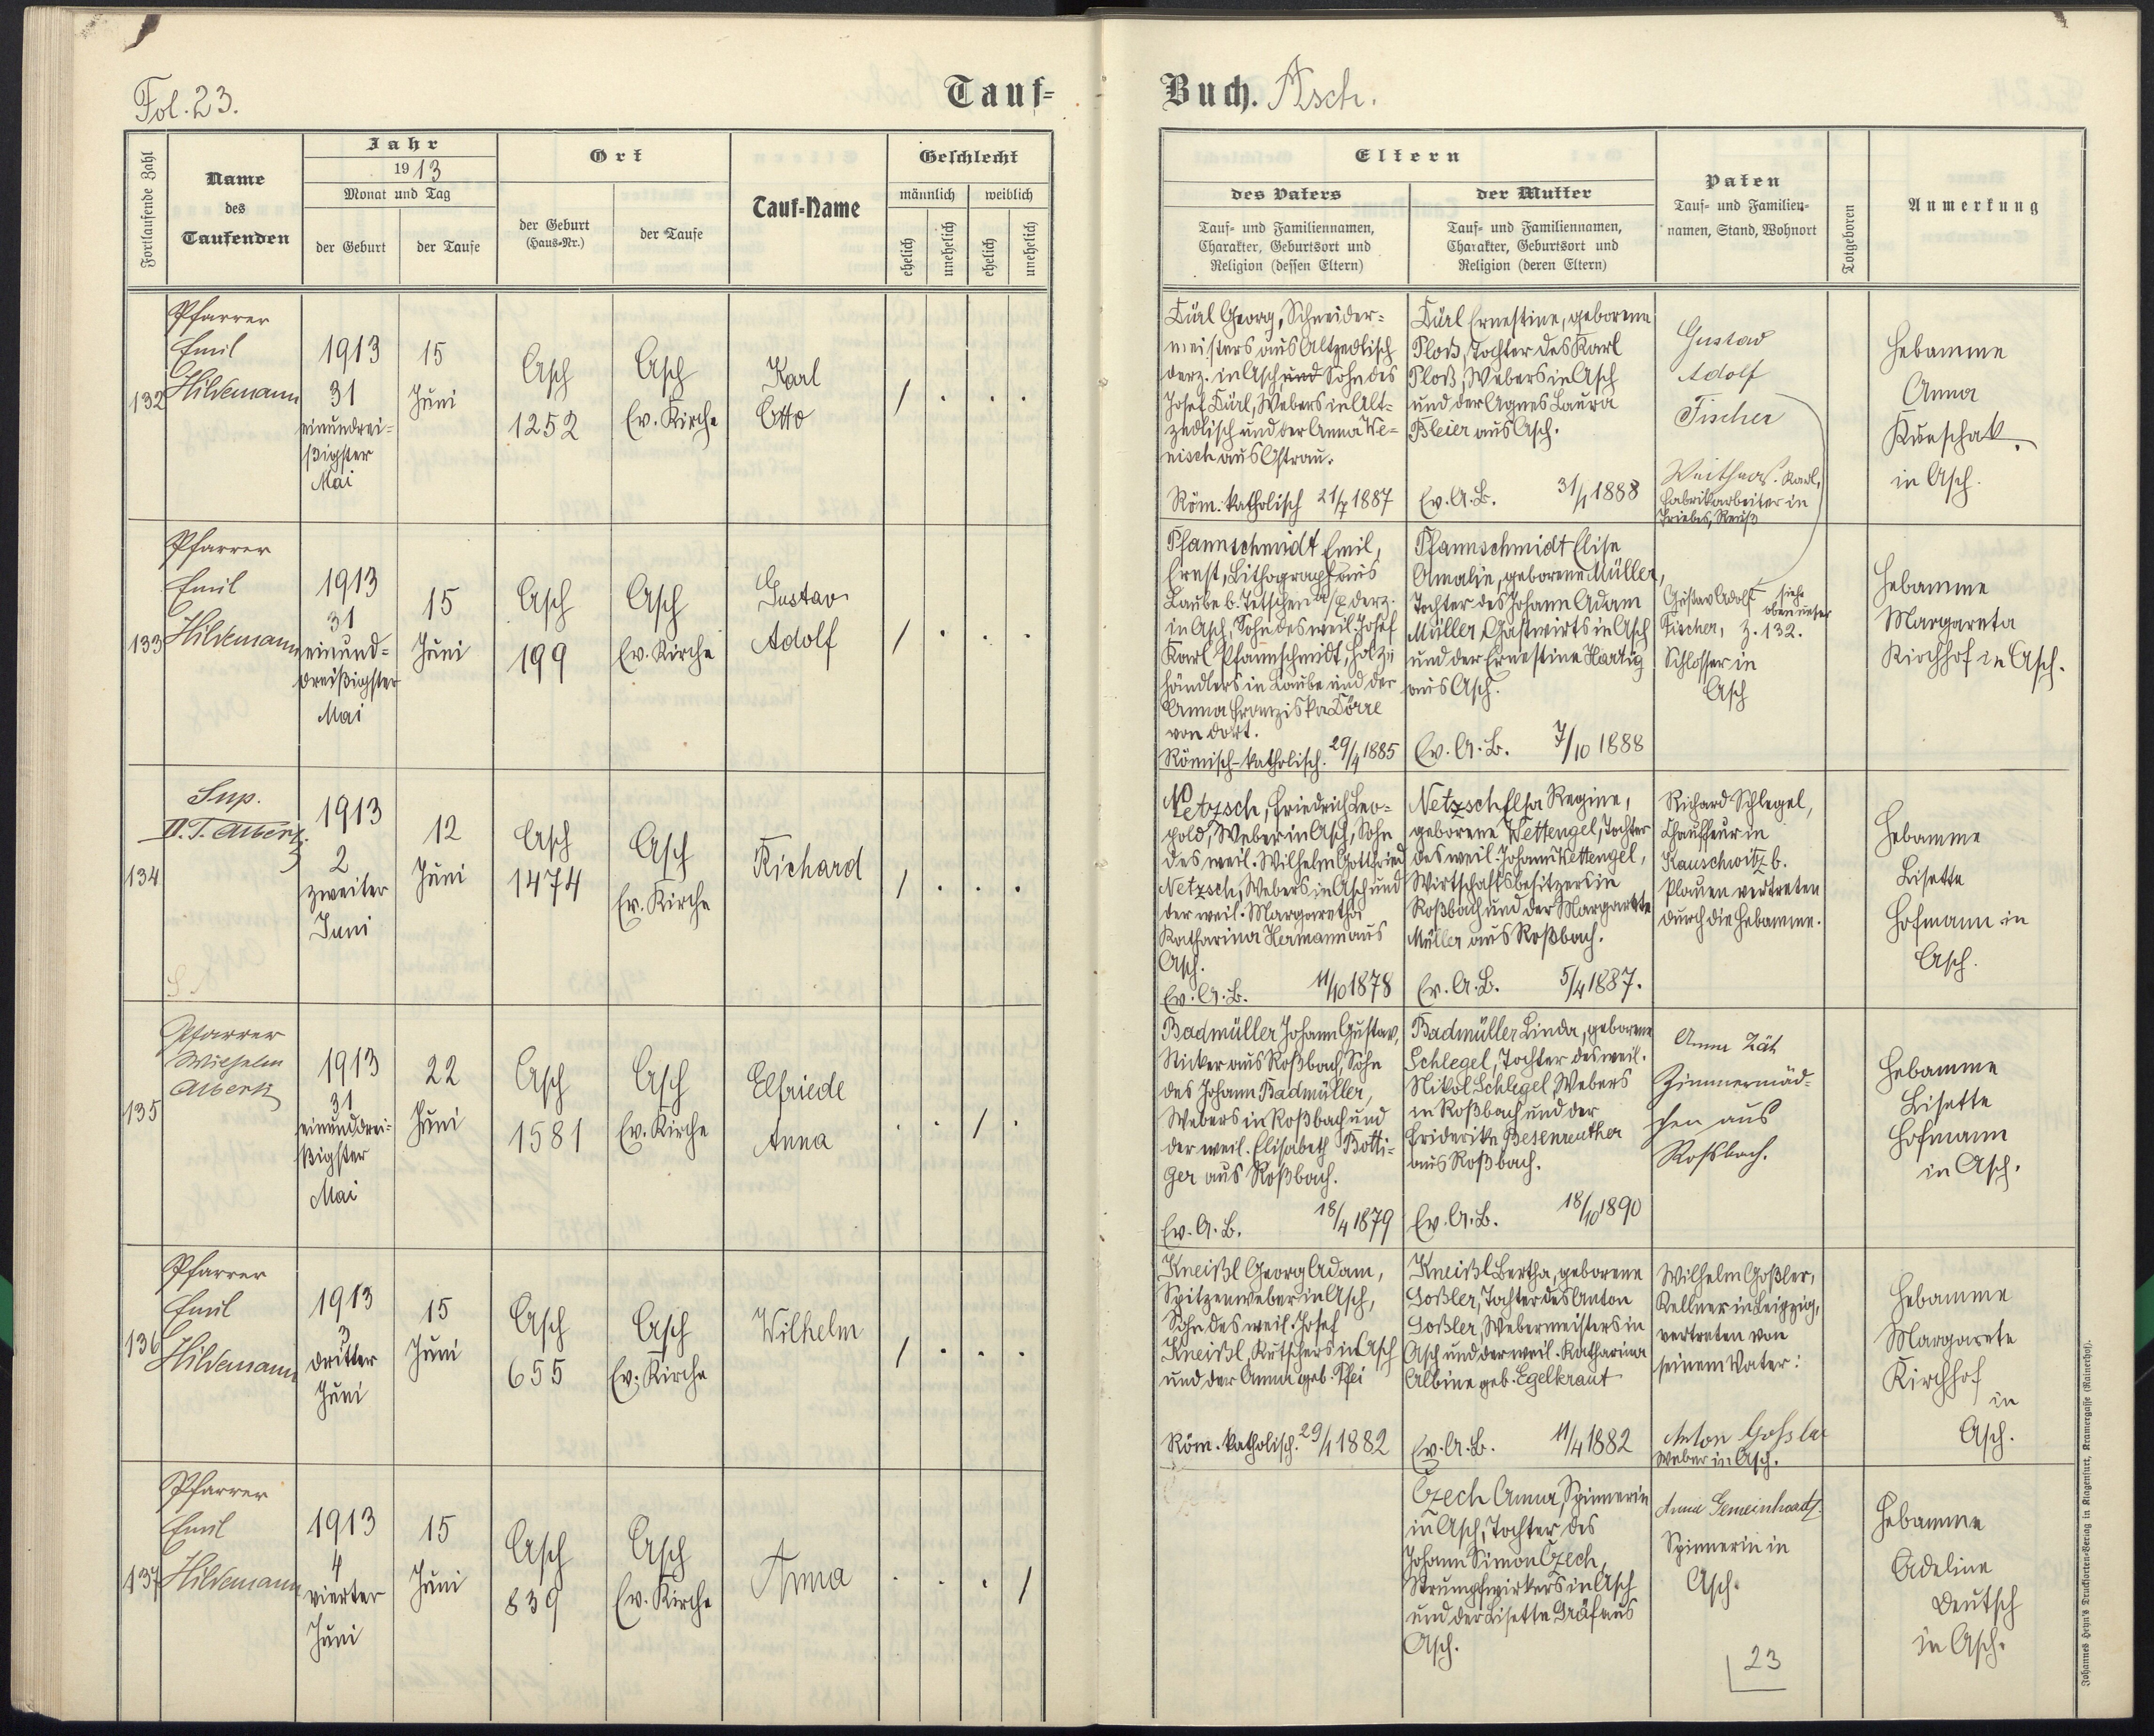 Fol. 23.
Tauf-
Buch. Asch.
Fortlaufende Zahl
Name
des
Taufenden
Jahr
1913
Monat und Tag
der Geburt
der Taufe
Ort
der Geburt
(Haus-Nr.)
der Taufe
Tauf-Name
Geschlecht
männlich
weiblich
ehelich
unehelich
ehelich
unehelich
Eltern
des Vaters
Tauf- und Familiennamen,
Charakter, Geburtsort und
Religion (dessen Eltern)
der Mutter
Tauf- und Familiennamen,
Charakter, Geburtsort und
Religion (deren Eltern)
Paten
Tauf- und Familien-
namen, Stand, Wohnort
Totgeboren
Anmerkung
132
Pfarrer
Emil
Hildemann
1913
31
einundrei-
ßigster
Mai
15
Juni
Asch
1252
Asch
Ev. Kirche
Karl
Otto
/ . . .
Türl Georg, Schneider-
meisters aus Altzedlisch
derz. in Asch und Sohn des
Josef Türl, Webers in Alt-
zedlisch und der Anna We-
nisch aus Ostrau.
Röm. katholisch 21/7 1887
Türl Ernestine, geborene
Ploß, Tochter des Karl
Ploß, Webers in Asch
und der Agnes Laura
Bleier aus Asch.
Ev. A. B. 31/1 1888
Gustav
Adolf
Fischer
Karl,
Fabrikarbeiter in
Triebes, Reuß
Hebamme
Anna
Kunschak
in Asch.
133
Pfarrer
Emil
Hildemann
1913
31
einund-
dreißigster
Mai
15
Juni
Asch
199
Asch
Ev. Kirche
Gustav
Adolf
/ . . .
Pfannschmidt Emil,
Ernst, Lithograph aus
Laube b. Tetschen a/E derz.
in Asch, Sohn des weil. Josef
Karl Pfannschmidt, Holz-
händlers in Laube und der
Anna Franziska Dörre
von dort.
Römisch-katholisch. 29/4 1885
Pfannschmidt Elise
Amalie, geborene Müller,
Tochter des Johann Adam
Müller, Gastwirts in Asch
und der Ernestine Hartig
aus Asch.
Ev. A. B. 7/10 1888
Gustav Adolf siehe
oben unter
Fischer, Z. 132.
Schlosser in
Asch
Hebamme
Margareta
Kirchhof in Asch.
134
Sup.
D. T. Alberti
1913
2
zweiter
Juni
12
Juni
Asch
1474
Asch
Ev. Kirche
Richard
/ . . .
Netzsch, Friedrich Leo-
pold, Weber in Asch, Sohn
des weil. Wilhelm Gottfried
Netzsch, Webers in Asch und
der weil. Margaretha
Katharina Hermann aus
Asch.
Ev. A. B. 11/10 1878
Netzsch Elsa Regine,
geborene Wettengel, Tochter
des weil. Johann Wettengel,
Wirtschaftsbesitzers in
Roßbach und der Margarete
Müller aus Roßbach.
Ev. A. B. 5/4 1887.
Richard Schlegel,
Chauffeur in
Kauschwitz b.
Plauen vertreten
durch die Hebamme.
Hebamme
Lisette
Hofmann in
Asch.
135
Pfarrer
Wilhelm
Alberti
1913
31
einunddrei-
ßigster
Mai
22
Juni
Asch
1581
Asch
Ev. Kirche
Elfriede
Anna
. . / .
Badmüller Johann Gustav,
Sticker aus Roßbach, Sohn
des Johann Badmüller,
Webers in Roßbach und
der weil. Elisabeth Botti-
ger aus Roßbach.
Ev. A. B. 18/4 1879
Badmüller Linda, geborene
Schlegel, Tochter des weil.
Nikol Schlegel, Webers
in Roßbach und der
Friderike Besenreuther
aus Roßbach.
Ev. A. B. 18/10 1890
Anna Zäh
Zimmermäd-
chen aus
Rossbach.
Hebamme
Lisette
Hofmann
in Asch.
136
Pfarrer
Emil
Hildemann
1913
3
dritter
Juni
15
Juni
Asch
655
Asch
Ev. Kirche
Wilhelm
/ . . .
Kneißl Georg Adam,
Spitzenweber in Asch,
Sohn des weil. Josef
Kneißl, Kutschers in Asch
und der Anna geb. Pfei
Röm. katholisch. 29/1 1882
Kneißl Bertha, geborene
Goßler, Tochter des Anton
Goßler, Webermeisters in
Asch und der weil. Katharina
Albine geb. Egelkraut
Ev. A. B. 11/4 1882
Wilhelm Goßler,
Kellner in Leipzig,
vertreten von
seinem Vater:
Anton Gossler
Weber in Asch.
Hebamme
Margarete
Kirchhof
in
Asch.
137
Pfarrer
Emil
Hildemann
1913
4
vierter
Juni
15
Juni
Asch
839
Asch
Ev. Kirche
Anna
. . . /
Czech Anna, Spinnerin
in Asch, Tochter des
Johann Simon Czech,
Strumpfwirkers in Asch
und der Lisette Gräf aus
Asch.
Anna Gemeinhardt
Spinnerin in
Asch.
Hebamme
Adeline
Deutsch
in Asch.
23
Johannes Heyn's Drucksorten-Verlag in Klagenfurt, Kramergasse (Rainerhof).